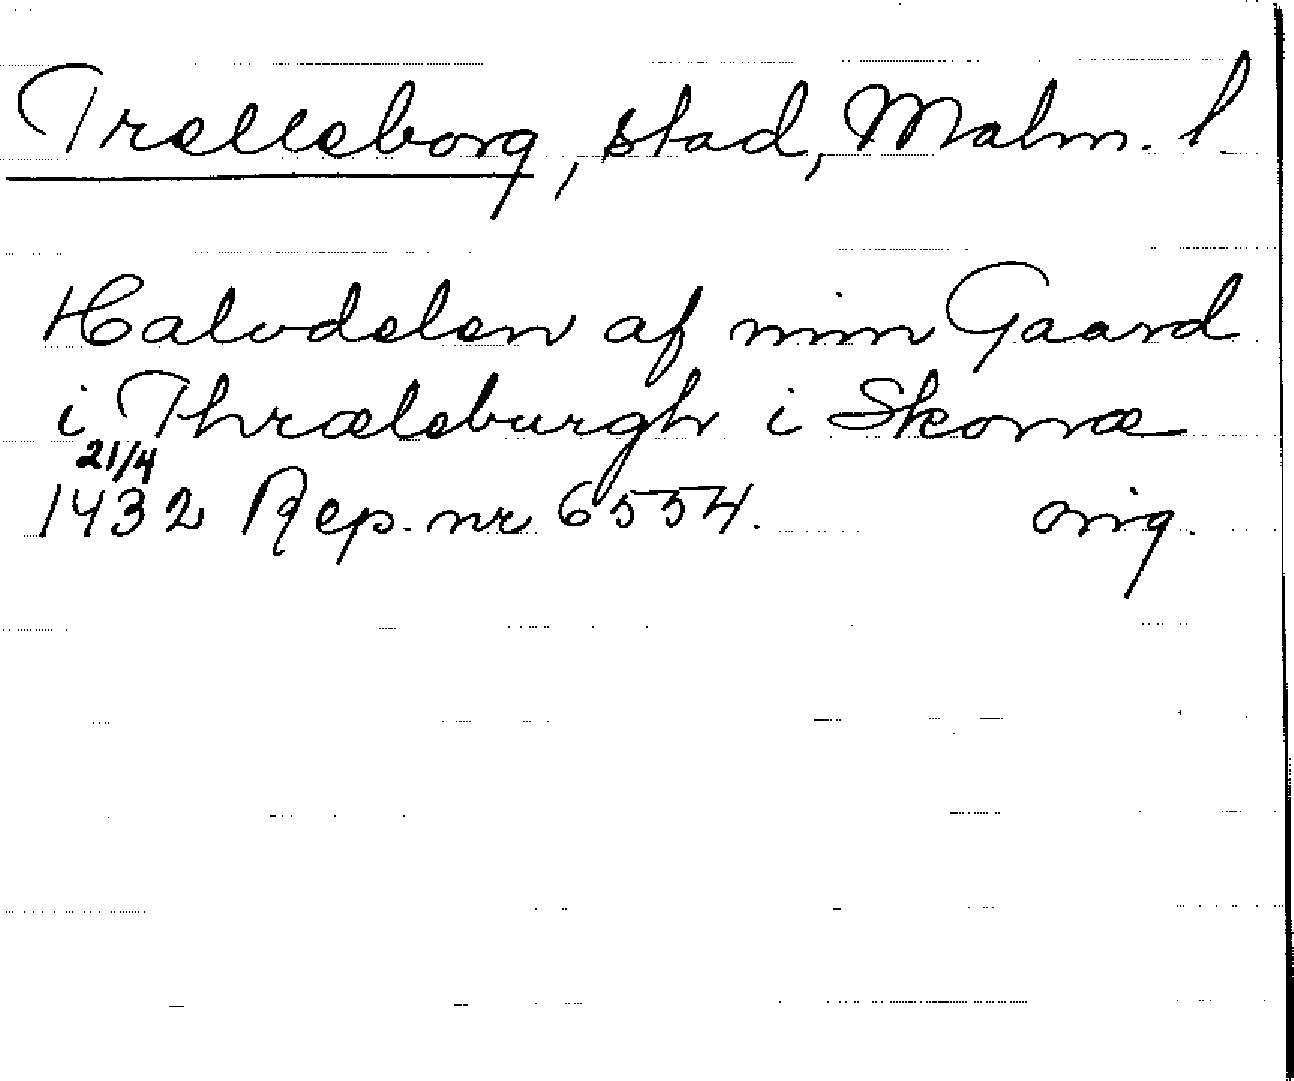 Trelleborg, stad, Malm. l.
Halvdelen af min Gaard
i Thræleburgh i Skonæ
21/4
1432 Rep. nr 6554. orig.